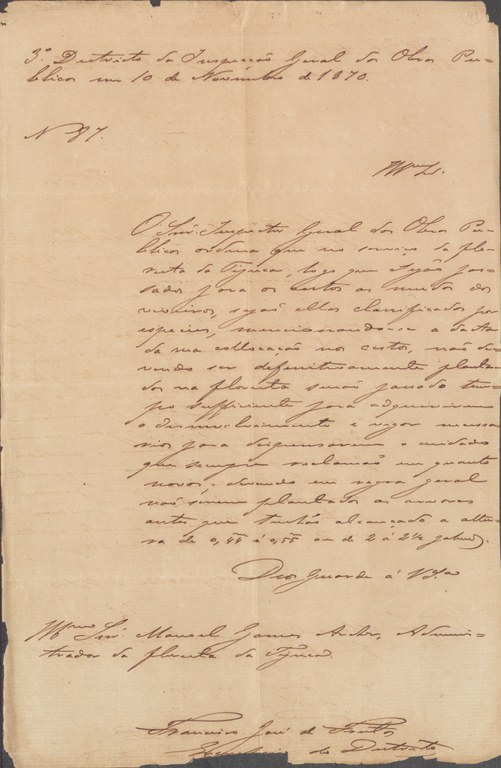 3º Districto da Inspecção Geral das Obras Pu-
blicas em 10 de Novembro de 1870.
N 87.
Illmo Sr.
O Snr. Inspector Geral das Obras Pu-
blicas ordena que no serviço da flo-
resta da Tijuca, logo que sejão pas-
sadas para os cestos as mudas dos
viveiros, sejão ellas classificadas por
especies, mencionando-se a data
da sua collocação nos cestos, não de-
vendo ser definitivamente planta-
das na floresta senão passado tem-
po sufficiente para adquirirem
o desenvolvimento e vigor necessa-
rios para dispensarem o cuidado
que sempre reclamão em quanto
novas; devendo em regra geral
não serem plantadas as arvores
antes que tenhão alcançado a altu-
ra de 0,44 á 0,55 ou de 2 á 2 1/2 palmos.
Deos Guarde á VSa
Illmo Snr. Manoel Gomes Archer, Adminis-
trador da floresta da Tijuca.
Francisco José de Freitas
do Districto